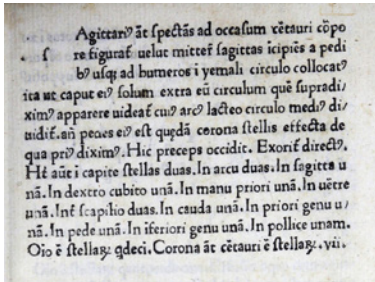 Agittariꝰ āt spectās ad occasum cētauri cōpo
s re figurat᷑ uelut mitter᷑ sagittas icipiēs a pedi
bꝰ usqꝫ ad humeros i yemali circulo collocatꝰ
ita ut caput eiꝰ solum extra eū circulum quē supradi/
ximꝰ apparere uideat᷑ cuiꝰ arcꝰ lacteo circulo mediꝰ di/
uidit᷑. añ pedes eiꝰ est quędā corona stellis effecta de
qua priꝰ diximꝰ. Hic preceps occidit. Exorit᷑ directꝰ.
Hēt aūt i capite stellas duas. In arcu duas. In sagitta u
nā. In dextro cubito unā. In manu priori unā. In uētre
unā. Int᷑ scapilio duas. In cauda unā. In priori genu u/
nā. In pede unā. In iferiori genu unā. In pollice unam.
Oīo ē stellaꝝ qdeci. Corona āt cētauri ē stellaꝝ .vii.